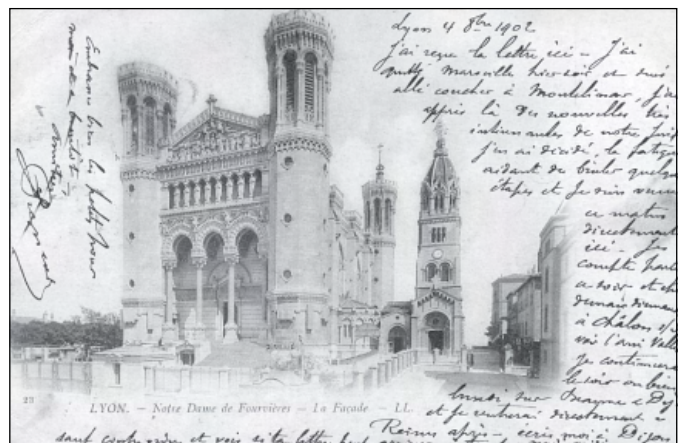 Lyon 4 8bre 1902
J'ai reçu la lettre ici - J'ai
quitté Marseille hier soir et suis
allé coucher à Montélimar, j'ai
appris là des nouvelles très
de notre
j'en ai décidé, la fatigue
aidant de brûler quelques
étapes et je suis venu
ce matin
directement
ici - Je
compte
ce soir - et
demain dimanche
à Châlon s/
voir l'ami
Je continuerai
le soir ou bien
lundi sur
et je rentrerai directement à
Reims après - écris moi à Dijon
sauf contre ordre et vois si ta lettre
Embrasse bien les petits pour
moi et à bientôt -
23
LYON. - Notre Dame de Fourvières - La Façade - LL.